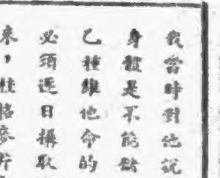 我當時對他說
身體是不能缺
乙種維他命的
必須逐日攝取
來，桂格麥片